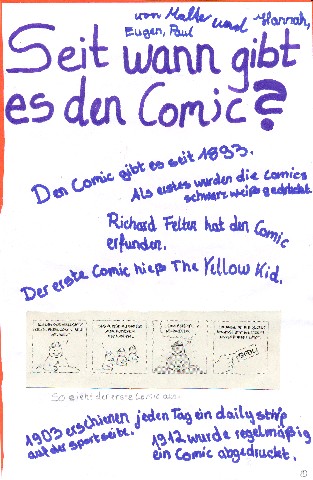 von Malte und Hannah,
Eugen, Paul
Seit wann gibt
es den Comic?
Den Comic gibt es seit 1893.
Als erstes wurden die Comics
schwarz weiß gedruckt.
Richard Felten hat den Comic
erfunden.
Der erste Comic hieß The Yellow Kid.
So sieht der erste Comic aus.
1903 erschienen jeden Tag ein daily strip
auf der Sportseite.
1912 wurde regelmäßig
ein Comic abgedruckt.